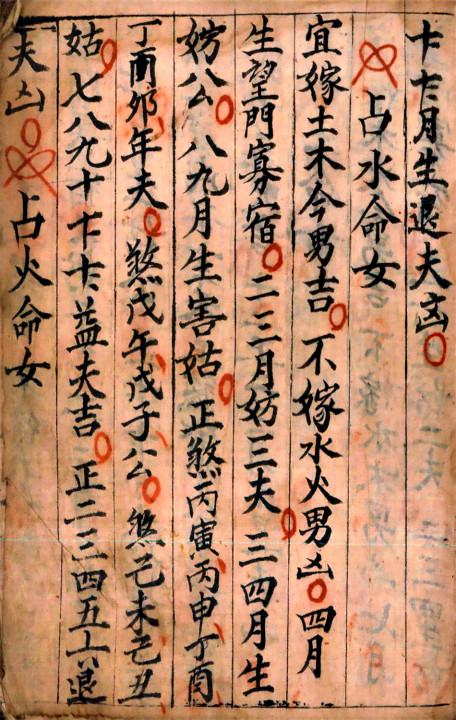 十一十二月生退夫凶
占水命女
宜嫁土木今男吉 不嫁水火男凶 四月
生望門寡宿 二三月妨三夫 三四月生
妨公 八九月生害姑 正煞丙寅丙申丁酉
丁酉夘年夫 煞戊午戊子公 煞己未己丑
姑 七八九十十一十二益夫吉 正二三四五六退
夫凶 占火命女